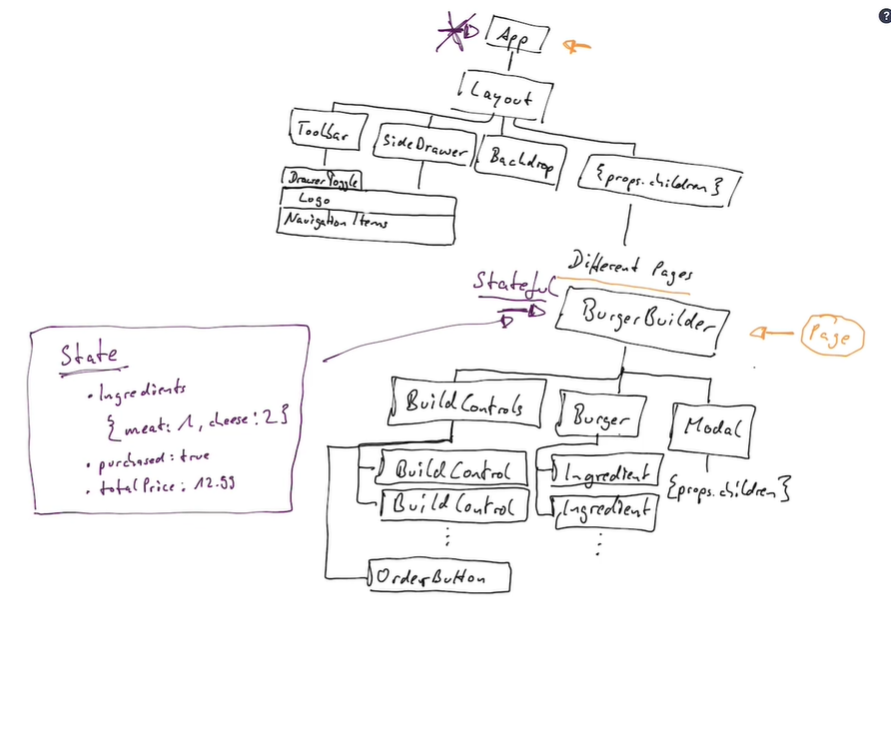 App
Layout
Toolbar
SideDrawer
Backdrop
{props.children}
DrawerToggle
Logo
Navigation Items
Different Pages
Stateful
BurgerBuilder
Page
State
• Ingredients
{meat: 1, cheese: 2}
• purchased: true
• totalPrice: 12.99
BuildControls
Burger
Modal
BuildControl
Ingredient
{props.children}
BuildControl
Ingredient
OrderButton
?